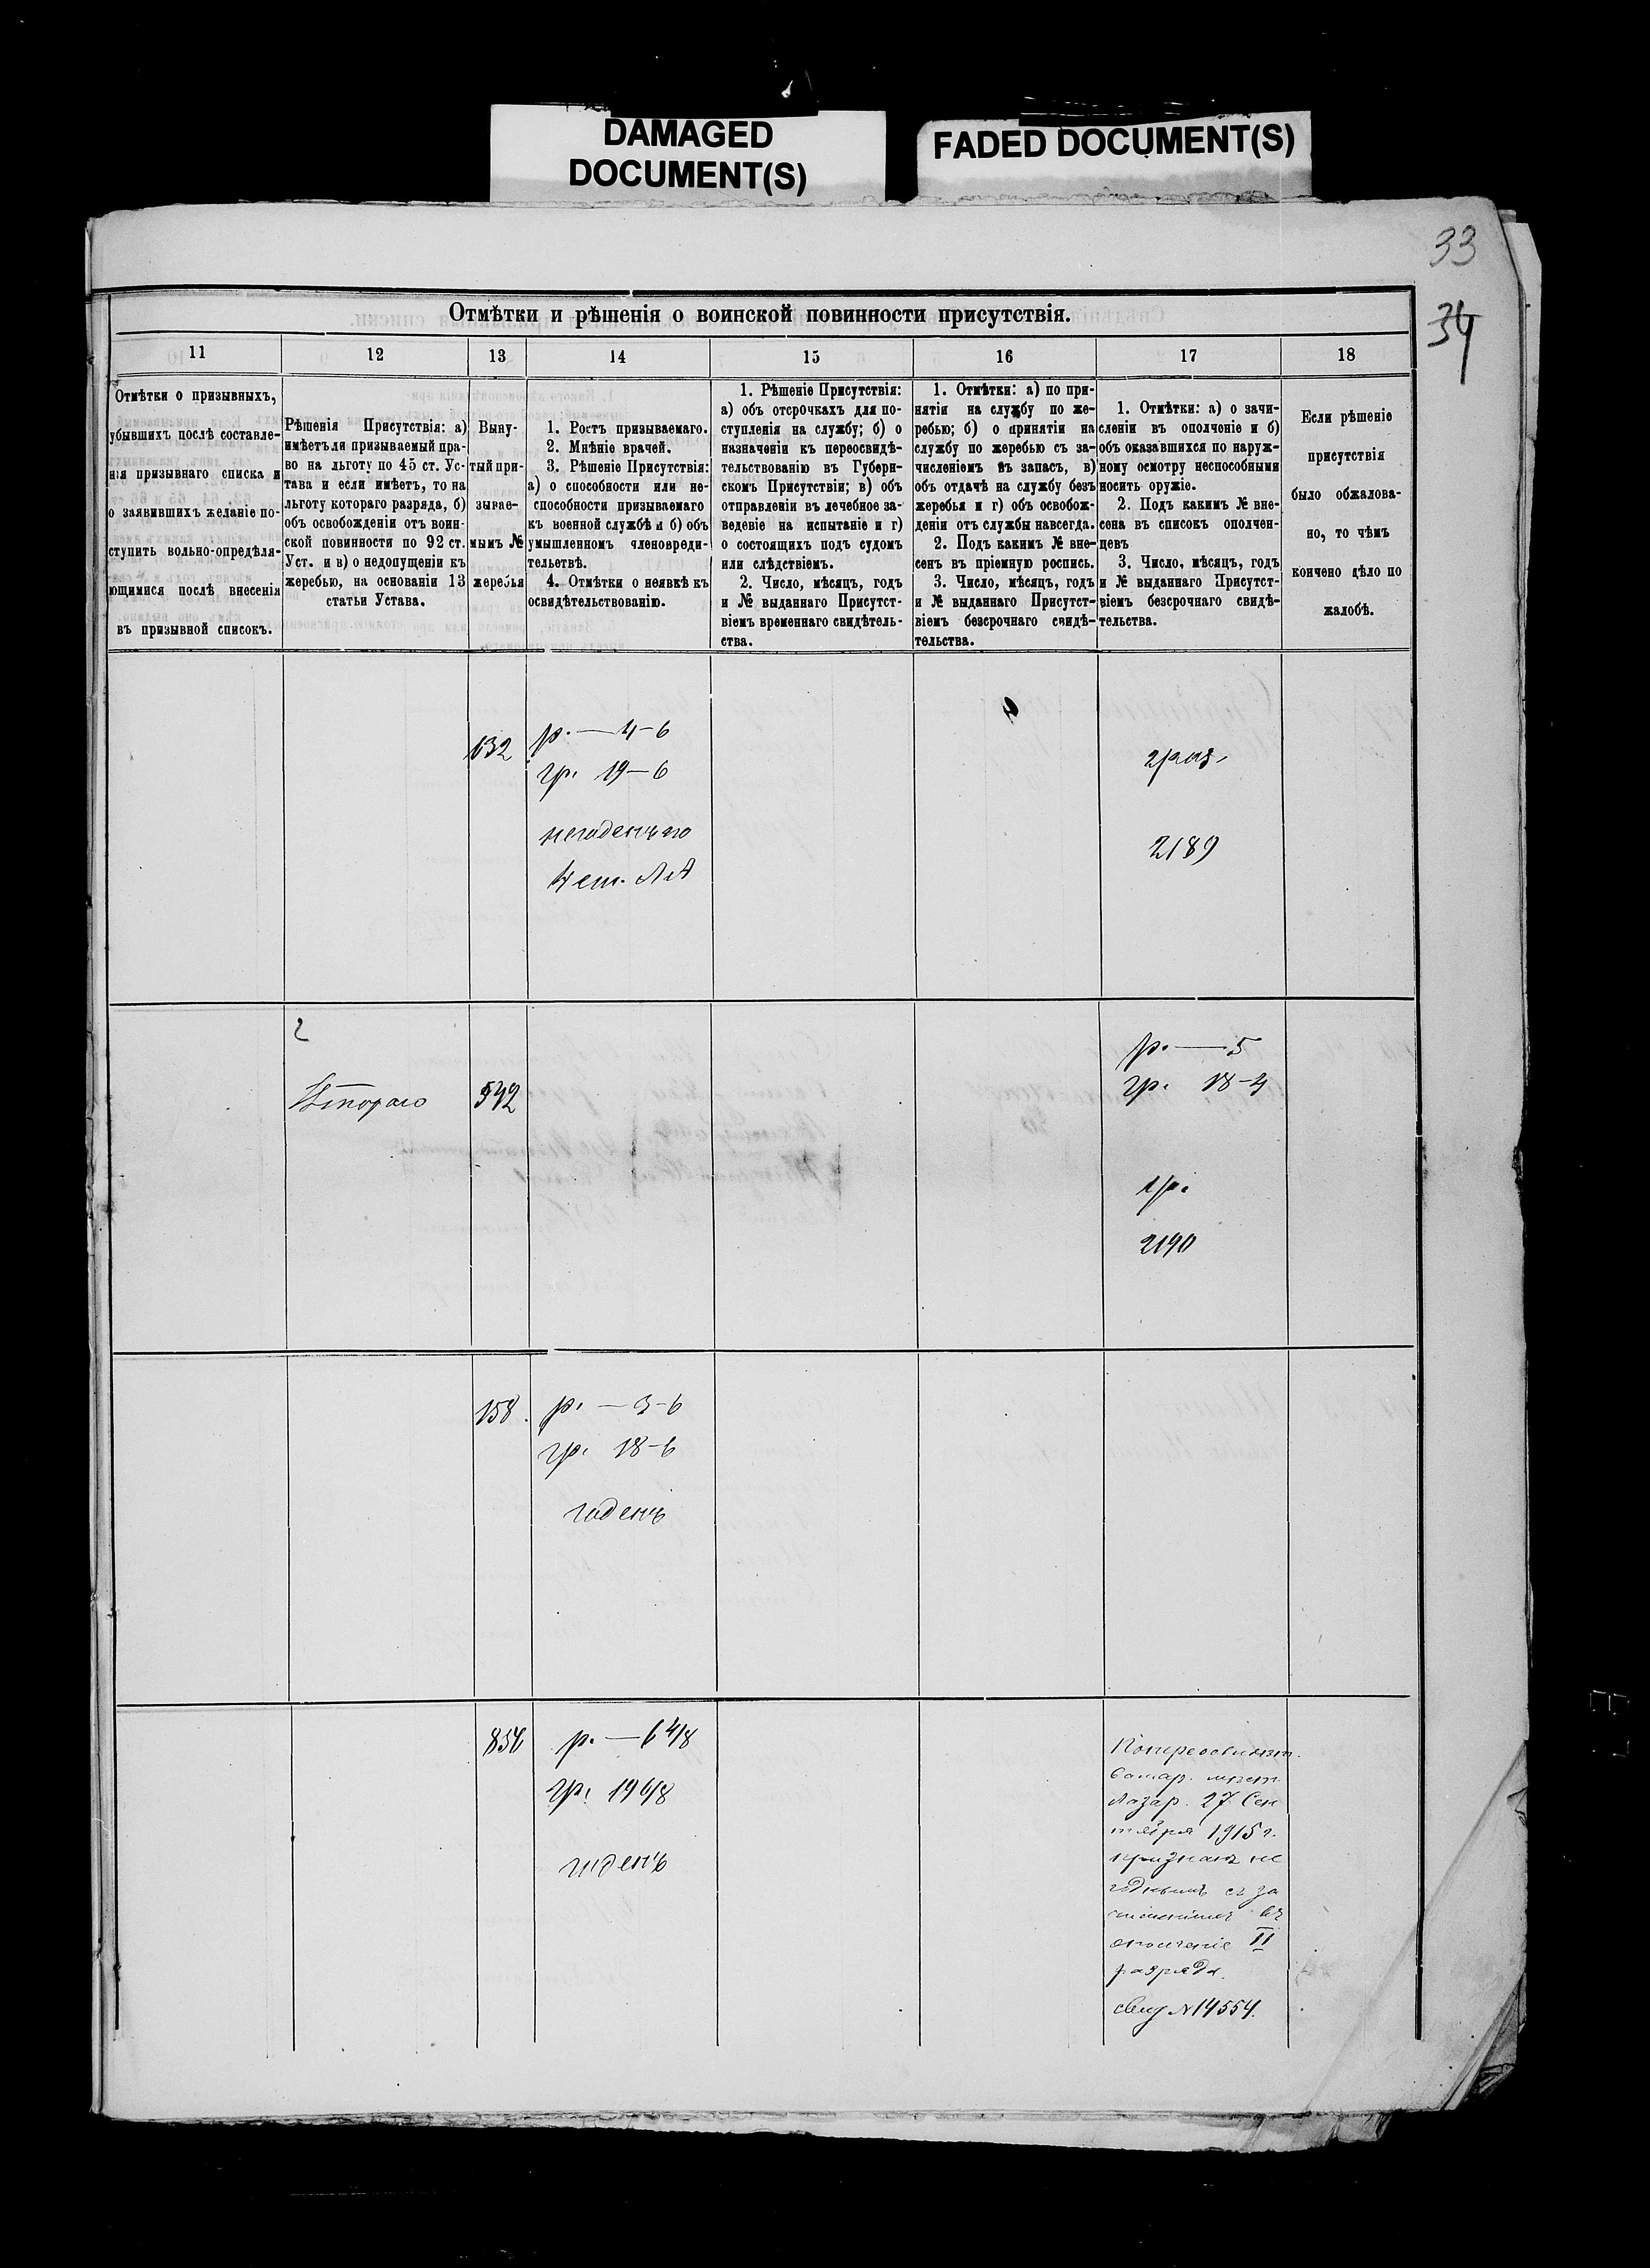 DAMAGED
DOCUMENT(S)
FADED DOCUMENT(S)
33
34
Отмѣтки и рѣшенія о воинской повинности присутствія.
11 12 13 14 15 16 17 18
Отмѣтки о призывныхъ,
убывшихъ послѣ составле-
нія призывнаго списка и
о заявившихъ желаніе по-
ступить вольно-опредѣля-
ющимися послѣ внесенія
въ призывной списокъ.
Рѣшенія Присутствія: а)
имѣетъли призываемый пра-
во на льготу по 45 ст. Ус-
тава и если имѣетъ, то на
льготу котораго разряда, б)
объ освобожденіи отъ воин-
ской повинности по 92 ст.
Уст. и в) о недопущеніи къ
жеребью, на основаніи 13
статьи Устава.
Выну-
тый при-
зывае-
мымъ №
жеребья
1. Ростъ призываемаго.
2. Мнѣніе врачей.
3. Рѣшеніе Присутствія:
а) о способности или не-
способности призываемаго
къ военной службѣ и б) объ
умышленномъ членовреди-
тельствѣ.
4. Отмѣтки о неявкѣ къ
освидѣтельствованію.
1. Рѣшеніе Присутствія:
а) объ отсрочкахъ для по-
ступленія на службу; б) о
назначеніи къ переосвидѣ-
тельствованію въ Губерн-
скомъ Присутствіи; в) объ
отправленіи въ лечебное за-
веденіе на испытаніе и г)
о состоящихъ подъ судомъ
или слѣдствіемъ.
2. Число, мѣсяцъ, годъ
и № выданнаго Присутст-
віемъ временнаго свидѣтель-
ства.
1. Отмѣтки: а) по при-
нятіи на службу по же-
ребью; б) о принятіи на
службу по жеребью съ за-
численіемъ въ запасъ, в)
объ отдачѣ на службу безъ
жеребья и г) объ освобож-
деніи отъ службы навсегда.
2. Подъ какимъ № вне-
сенъ въ пріемную роспись.
3. Число, мѣсяцъ, годъ
и № выданнаго Присутст-
віемъ безсрочнаго свидѣ-
тельства.
1. Отмѣтки: а) о зачи-
сленіи въ ополченіе и б)
объ оказавшихся по наруж-
ному осмотру неспособными
носить оружіе.
2. Подъ какимъ № вне-
сена въ списокъ ополчен-
цевъ
3. Число, мѣсяцъ, годъ
и № выданнаго Присутст-
віемъ безсрочнаго свидѣ-
тельства.
Если рѣшеніе
присутствія
было обжалова-
но, то чѣмъ
кончено дѣло по
жалобѣ.
632
р. — 4-6
гр. 19-6
негоденъ по
2 раз.
2189
2
Втораго
592
р. — 5
гр. 18-4
1 р.
2190
158
р. — 3-6
гр. 18-6
годенъ
856
р. — 6 4/8
гр. 19 6/8
годенъ
мѣст.
Лазар. 27 Сен
тября 1915 г.
признанъ не
годнымъ съ за
численіемъ въ
ополченіе II
разряда.
свид № 14554.